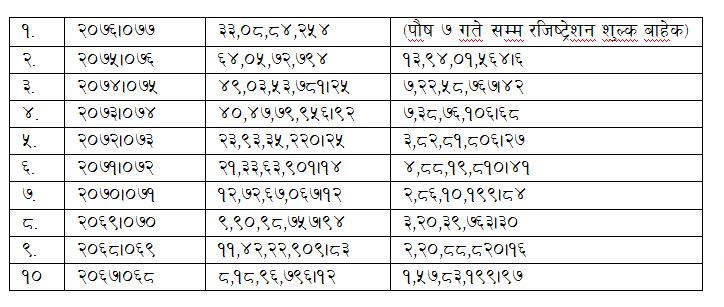 १. २०७६।०७७ ३३,०८,८४,२५४ (पौष ७ गते सम्म रजिष्ट्रेशन शुल्क बाहेक)
२. २०७५।०७६ ६४,०५,७२,७९४ १३,९४,०१,५६४।६
३. २०७४।०७५ ४९,०३,५३,७८१।२५ ७,२२,५८,७६७।४२
४. २०७३।०७४ ४०,४७,७९,९५६।९२ ७,३८,७६,१०६।६८
५. २०७२।०७३ २३,९३,३५,२२०।२५ ३,८२,८१,८०६।२७
६. २०७१।०७२ २१,३३,६३,९०१।१४ ४,८८,१९,८१०।४१
७. २०७०।०७१ १२,७२,६७,०६७।१२ २,८६,१०,१९९।८४
८. २०६९।०७० ९,९०,९८,७५७।९४ ३,२०,३९,७६३।३०
९. २०६८।०६९ ११,४२,२२,९०९।८३ २,२०,८८,८२०।१६
१० २०६७।०६८ ८,१८,९६,७९६।१२ १,५७,८३,१९९।९७